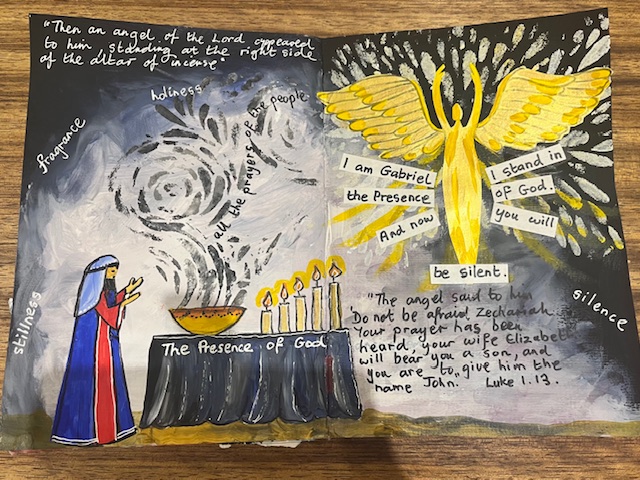 "Then an angel of the Lord appeared
to him, standing at the right side
of the altar of incense"
holiness
fragrance
all the prayers of the people
stillness
The Presence of God
I am Gabriel
I stand in
the Presence
of God.
And now
you will
be silent.
silence
"The angel said to him
'Do not be afraid, Zechariah
Your prayer has been
heard, your wife Elizabeth
will bear you a son, and
you are to give him the
name John." Luke 1.13.